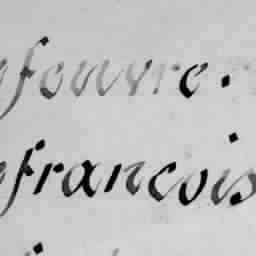 feuvre.
francois